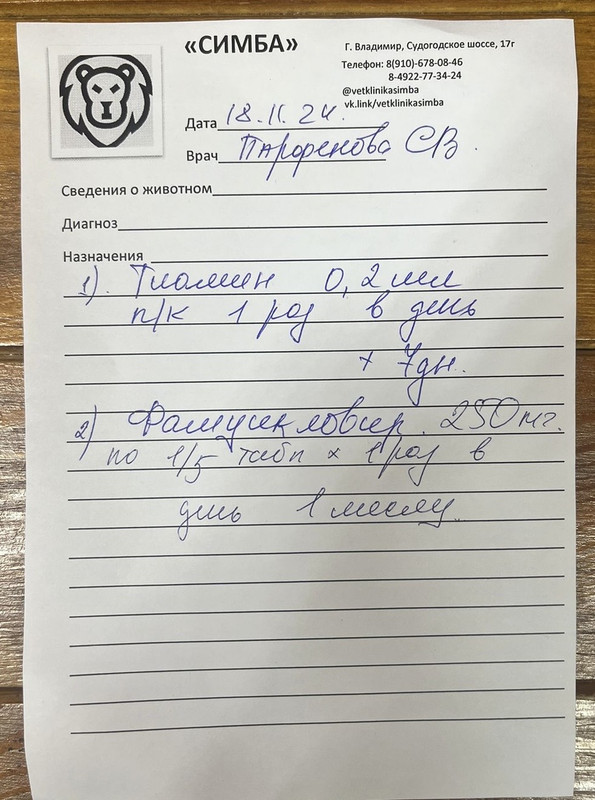 «СИМБА»
Г. Владимир, Судогодское шоссе, 17г
Телефон: 8(910)-678-08-46
8-4922-77-34-24
@vetklinikasimba
vk.link/vetklinikasimba
Дата 18.11.24.
Врач Парфенова СВ.
Сведения о животном
Диагноз
Назначения
1). Тиамин 0,2 мл
п/к 1 раз в день
х 7дн.
2) Фамцикловир. 250 мг.
по 1/5 табл х 1 раз в
день 1 месяц.